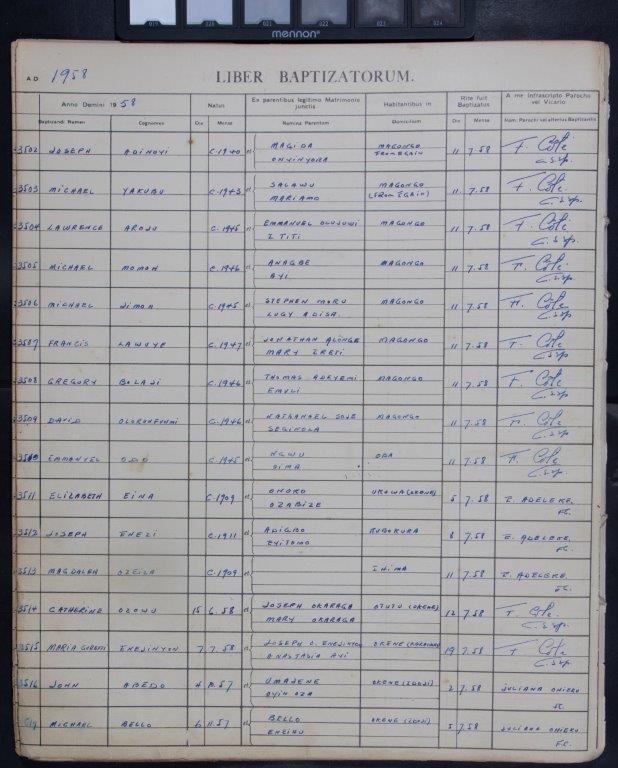 019 020 021 022 023 024
mennon
A D 1958 LIBER BAPTIZATORUM.
Anno Domini 1958 Natus Ex parentibus legitimo Matrimonio junctis Habitantibus in Rite fuit Baptizatus A me infrascripto Parocho vel Vicario
Baptizandi Nomen Cognomen Die Mense Nomina Parentum Domicilium Die Mense Nom. Parochi vel alterius Baptizantis
3502 JOSEPH ADINOYI C.1940 et MAGIDA MAGONGO 11 7.58 F. Cole
ONYINYORA FROM EGAIN c.ssp.
3503 MICHAEL YAKUBU C.1943 et SALAWU MAGONGO 11 7.58 F. Cole
MARIAMO (FROM EGAIN) c.ssp.
3504 LAWRENCE AROJU C.1945 et EMMANUEL OLUJUWI MAGONGO 11 7.58 F. Cole
TITI c.ssp.
3505 MICHAEL MOMOH C.1946 et ANAGBE MAGONGO 11 7.58 F. Cole
AYI c.ssp.
3506 MICHAEL JIMOH C.1945 et STEPHEN MORU MAGONGO 11 7.58 F. Cole
LUCY ADISA. c.ssp.
3507 FRANCIS LAWUYE C.1947 et JONATHAN ALONGE MAGONGO 11 7.58 F. Cole
MARY c.ssp.
3508 GREGORY BOLAJI C.1946 et THOMAS ADEYEMI MAGONGO 11 7.58 F. Cole
EMYLI c.ssp.
3509 DAVID OLORUNFUNMI C.1946 et NATHANAEL SOJE MAGONGO 11 7.58 F. Cole
SEGINOLA c.ssp.
3510 EMMANUEL ODO C.1945 et NGWU ODA 11 7.58 F. Cole
OIMA c.ssp.
3511 ELIZABETH EINA C.1909 et ONORO UKOWA (OKENE) 5 7.58 E. ADELEKE.
OZABIZE FC.
3512 JOSEPH ENEZI C.1911 et ADIGBO KUROKURA 8 7.58 E. ADELEKE.
EYITOMO FC.
3513 MAGDALEN OZEIZA C.1909 et IHIMA 11 7.58 E. ADELEKE.
FC.
3514 CATHERINE OZOWU 15 6.58 et JOSEPH OKARAGA OTUTU (OKENE) 12 7.58 F. Cole.
MARY OKARAGA c.ssp.
3515 MARIA GORETTI ENEJINYON 7 7.58 et JOSEPH O. ENEJINYON OKENE 19 7.58 F. Cole
ANASTASIA AYI c.ssp.
3516 JOHN ABEDO 4 .57 et UMAJENE OKENE (IDOJI) 2 7.58 JULIANA OHIEKU
OYIN OZA FC.
MICHAEL BELLO 6 11.57 et BELLO OKENE (IDOJI) 5 7.58 JULIANA OHIEKU
F.C.